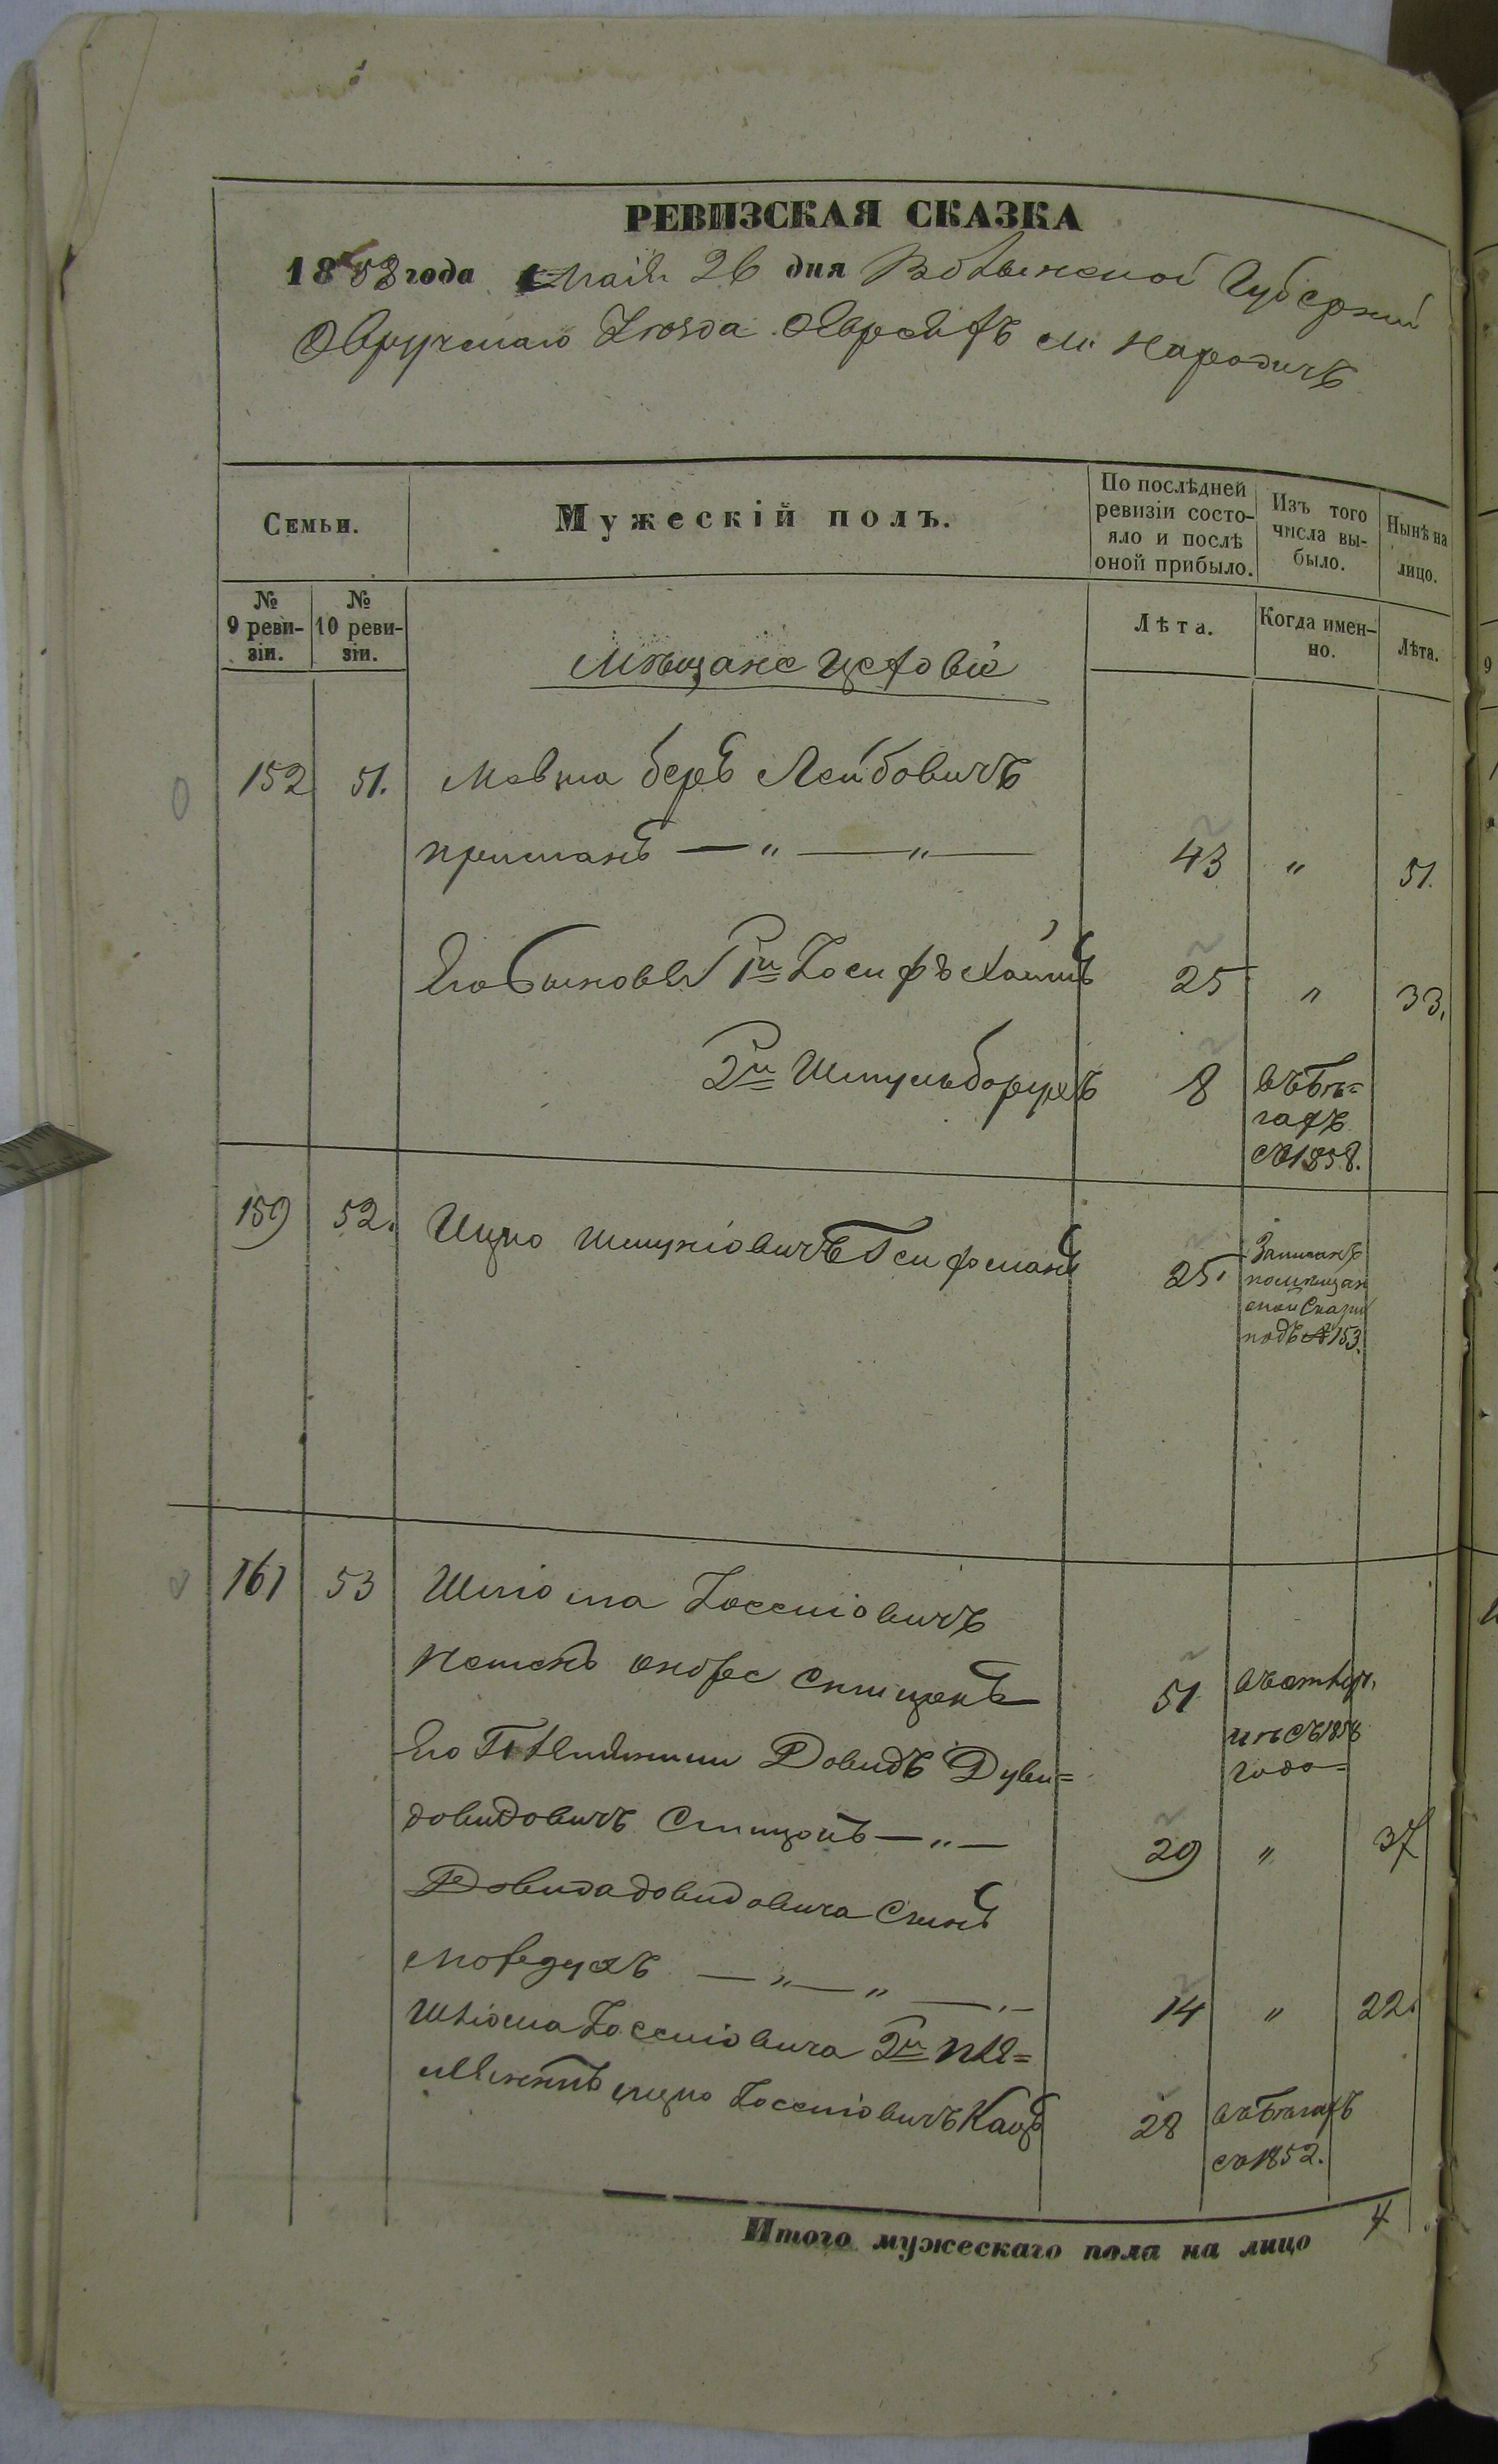 РЕВИЗСКАЯ СКАЗКА
1858 года Маія 26 дня Волынской Губерніи
Овручскаго уѣзда Евреевъ м. Народичъ
Семьи.
Мужескій полъ.
По послѣдней ревизіи состо-
яло и послѣ
оной прибыло.
Изъ того
числа вы-
было.
Нынѣ на
лицо.
№
9 реви-
зіи.
№
10 реви-
зіи.
Лѣта.
Когда имен-
но.
Лѣта.
Мѣщане
152 51. Мовша беръ Лейбовичъ
— „ — „ — 43 „ 51.
Его Сыновья 1й Іосифъ Хаимъ 25 „ 33.
2й Шмуль борухъ 8 въ бѣ=
гахъ
съ 1858.
159 52. Ицко Шмуліовичъ Гсифманъ 25.
Записанъ
по мѣщан
ской Сказки
подъ № 153.
161 53 Шліома Іоселіовичъ
Спицонъ 51
съ 1858
года
Его 1й племянники Довидъ Дуви=
довидовичъ Спицонъ — „ — 29 „ 37
Довида довидовича Сынъ
мордухъ — „ — „ — „ — 14 „ 22.
Шліома Іоселіовича 2й пле=
мянникъ ицко Іоселіовичъ Кацъ 28 въ бѣгахъ
съ 1852.
Итого мужескаго пола на лицо 4